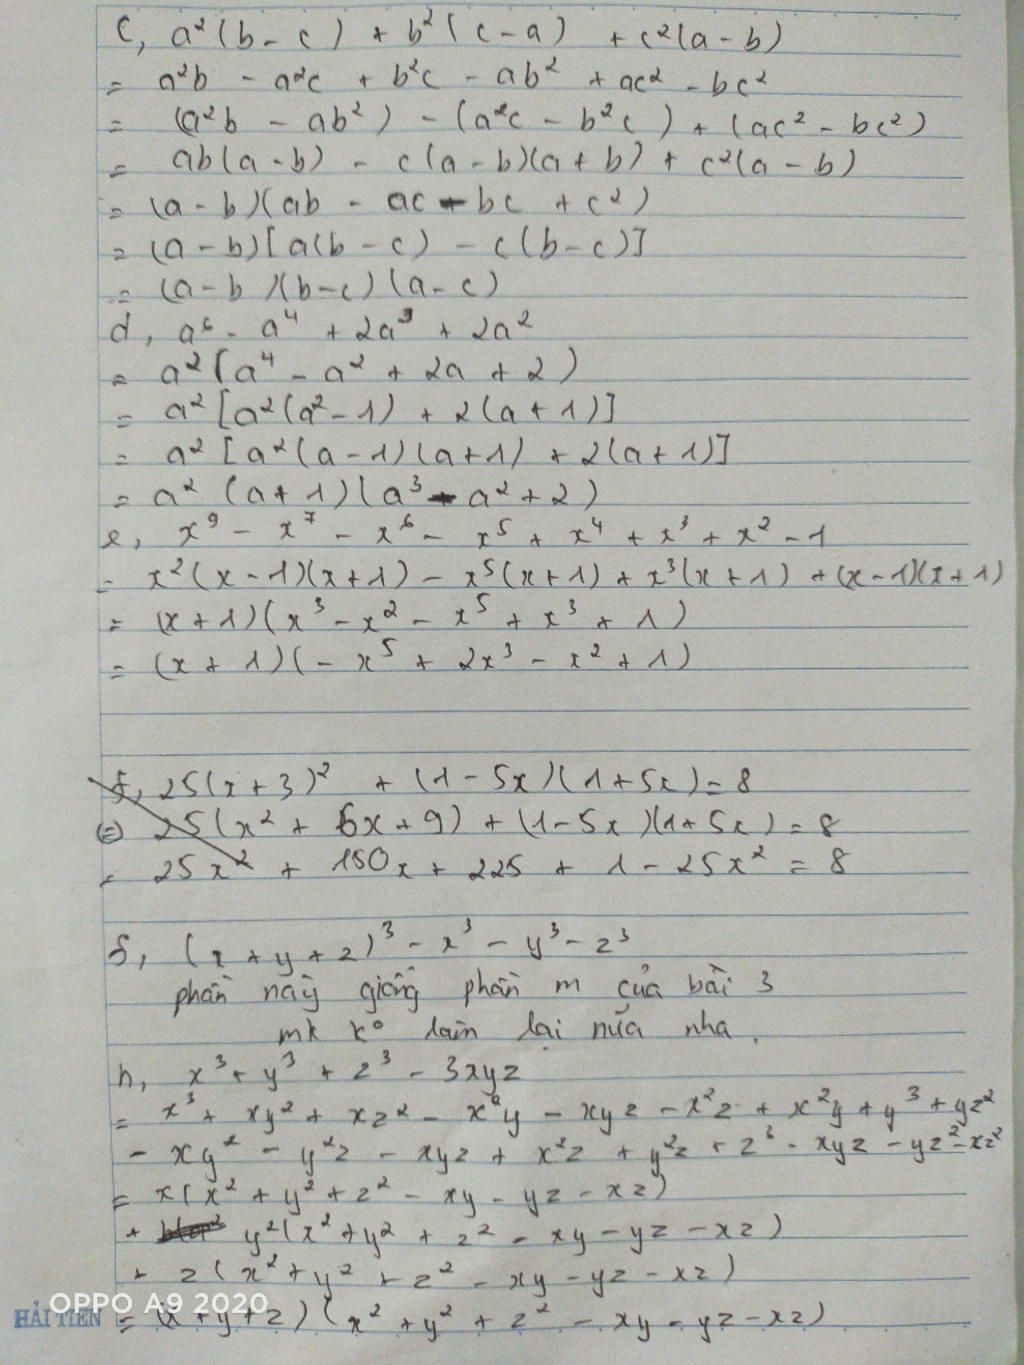 c, a²(b - c) + b²(c - a) + c²(a - b)
= a²b - a²c + b²c - ab² + ac² - bc²
= (a²b - ab²) - (a²c - b²c) + (ac² - bc²)
= ab(a - b) - c(a - b)(a + b) + c²(a - b)
= (a - b)(ab - ac - bc + c²)
= (a - b)[a(b - c) - c(b - c)]
= (a - b)(b - c)(a - c)
d, a⁶ - a⁴ + 2a³ + 2a²
= a²(a⁴ - a² + 2a + 2)
= a²[a²(a² - 1) + 2(a + 1)]
= a²[a²(a - 1)(a + 1) + 2(a + 1)]
= a²(a + 1)(a³ - a² + 2)
e, x⁹ - x⁷ - x⁶ - x⁵ + x⁴ + x³ + x² - 1
= x²(x - 1)(x + 1) - x⁵(x + 1) + x³(x + 1) + (x - 1)(x + 1)
= (x + 1)(x³ - x² - x⁵ + x³ + 1)
= (x + 1)(- x⁵ + 2x³ - x² + 1)
f, 25(x + 3)² + (1 - 5x)(1 + 5x) = 8
(=) 25(x² + 6x + 9) + (1 - 5x)(1 + 5x) = 8
= 25x² + 150x + 225 + 1 - 25x² = 8
f, (x + y + z)³ - x³ - y³ - z³
phần này giống phần m của bài 3
mk k° làm lại nữa nha.
h, x³ + y³ + z³ - 3xyz
= x³ + xy² + xz² - x²y - xyz - x²z + x²y + y³ + yz²
- xy² - y²z - xyz + x²z + y²z + z³ - xyz - yz² - xz²
= x(x² + y² + z² - xy - yz - xz)
+ y²(x² + y² + z² - xy - yz - xz)
+ z(x² + y² + z² - xy - yz - xz)
= (x + y + z)(x² + y² + z² - xy - yz - xz)
OPPO A9 2020
HẢI TIẾN